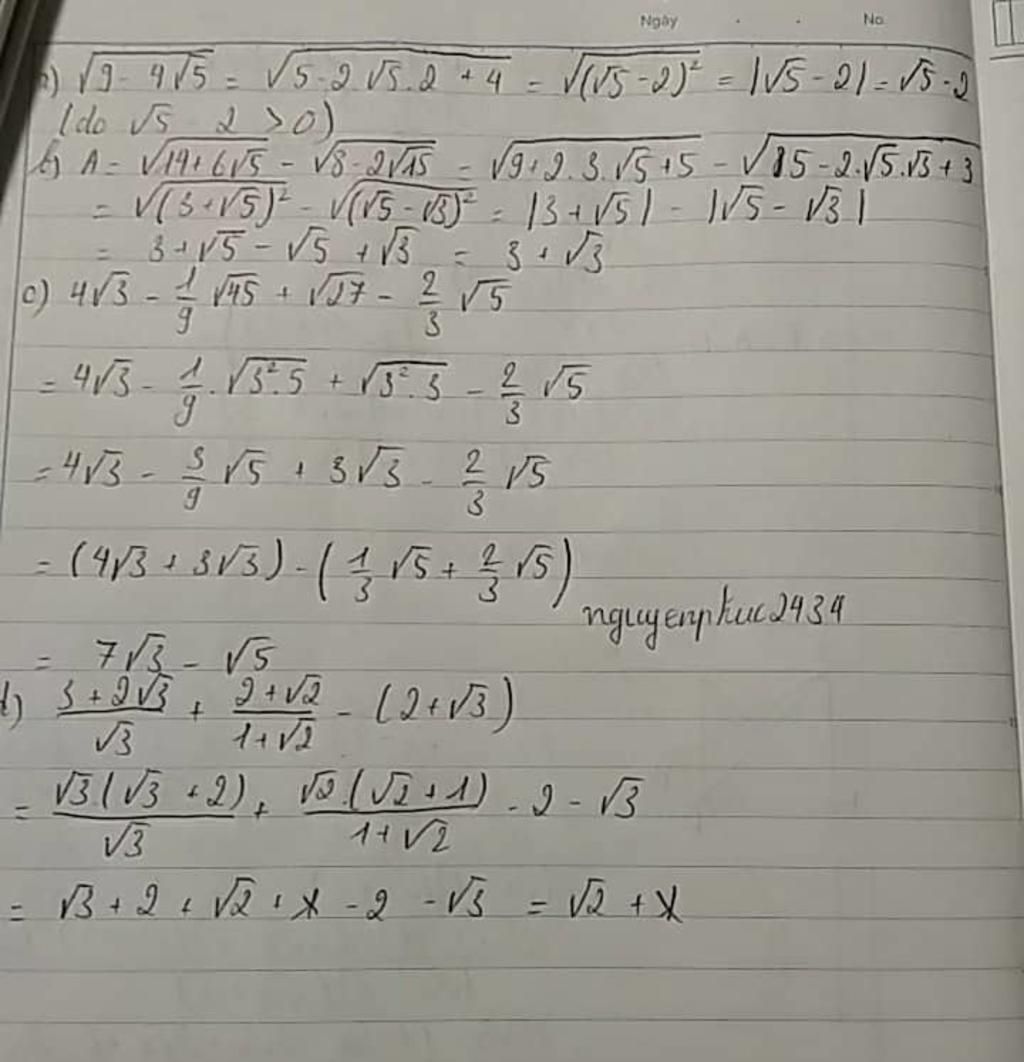 Ngày . . No.
a) √(9 - 4√5) = √(5 - 2.√5.2 + 4) = √((√5 - 2)²) = |√5 - 2| = √5 - 2
(do √5 - 2 > 0)
b) A = √(14 + 6√5) - √(8 - 2√15) = √(9 + 2.3.√5 + 5) - √(5 - 2.√5.√3 + 3)
= √((3 + √5)²) - √((√5 - √3)²) = |3 + √5| - |√5 - √3|
= 3 + √5 - √5 + √3 = 3 + √3
c) 4√3 - 1/9 √45 + √27 - 2/3 √5
= 4√3 - 1/9 . √(3².5) + √(3².3) - 2/3 √5
= 4√3 - 3/9 √5 + 3√3 - 2/3 √5
= (4√3 + 3√3) - (1/3 √5 + 2/3 √5)
nguyenphuc2434
= 7√3 - √5
d) (3 + 2√3)/√3 + (2 + √2)/(1 + √2) - (2 + √3)
= √3.(√3 + 2)/√3 + √2.(√2 + 1)/(1 + √2) - 2 - √3
= √3 + 2 + √2 + - 2 - √3 = √2 +